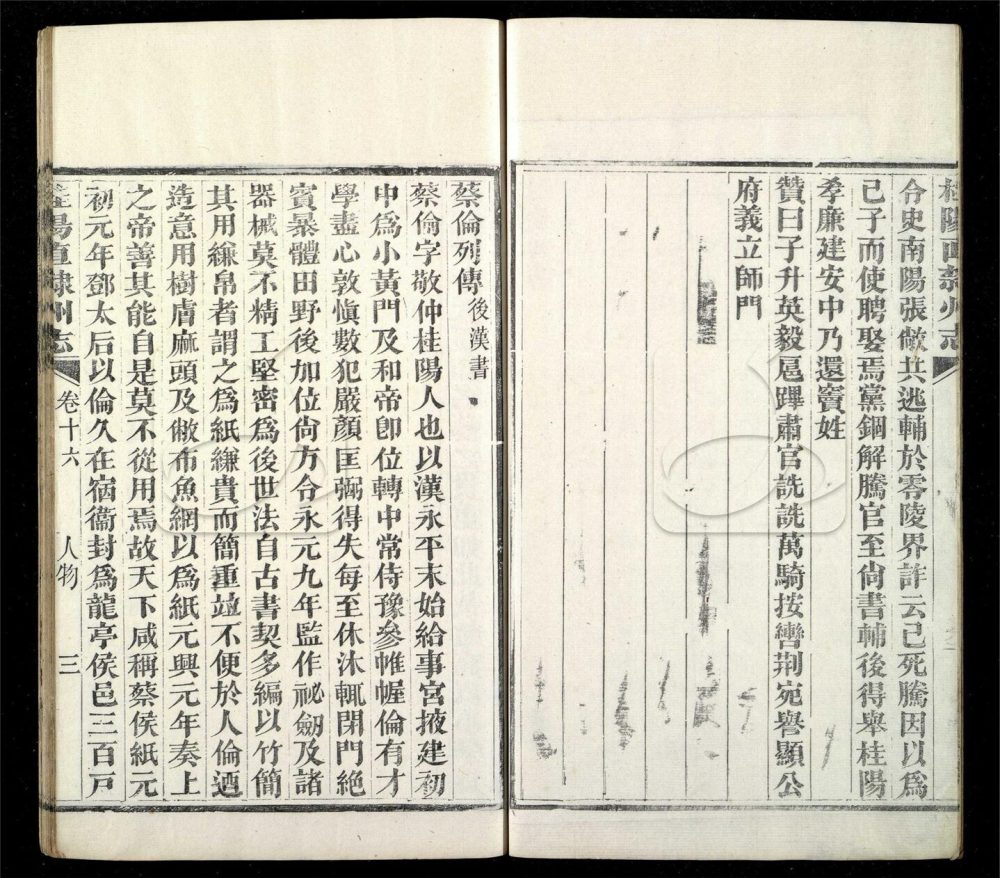 桂陽直隸州志
令史南陽張敞共逃輔於零陵界詐云已死騰因以爲
己子而使聘娶焉黨錮解騰官至尙書輔後得舉桂陽
孝廉建安中乃還竇姓
贊曰子升英毅扈蹕肅官詵詵萬騎按轡荆宛譽顯公
府義立師門
蔡倫列傳 後漢書
蔡倫字敬仲桂陽人也以漢永平末始給事宮掖建初
中爲小黃門及和帝卽位轉中常侍豫參帷幄倫有才
學盡心敦愼數犯嚴顏匡弼得失每至休沐輒閉門絶
賓暴體田野後加位尙方令永元九年監作祕劒及諸
器械莫不精工堅密爲後世法自古書契多編以竹簡
其用縑帛者謂之爲紙縑貴而簡重竝不便於人倫迺
造意用樹膚麻頭及敝布魚網以爲紙元興元年奏上
之帝善其能自是莫不從用焉故天下咸稱蔡侯紙元
初元年鄧太后以倫久在宿衞封爲龍亭侯邑三百戸
桂陽直隸州志 卷十六 人物 三